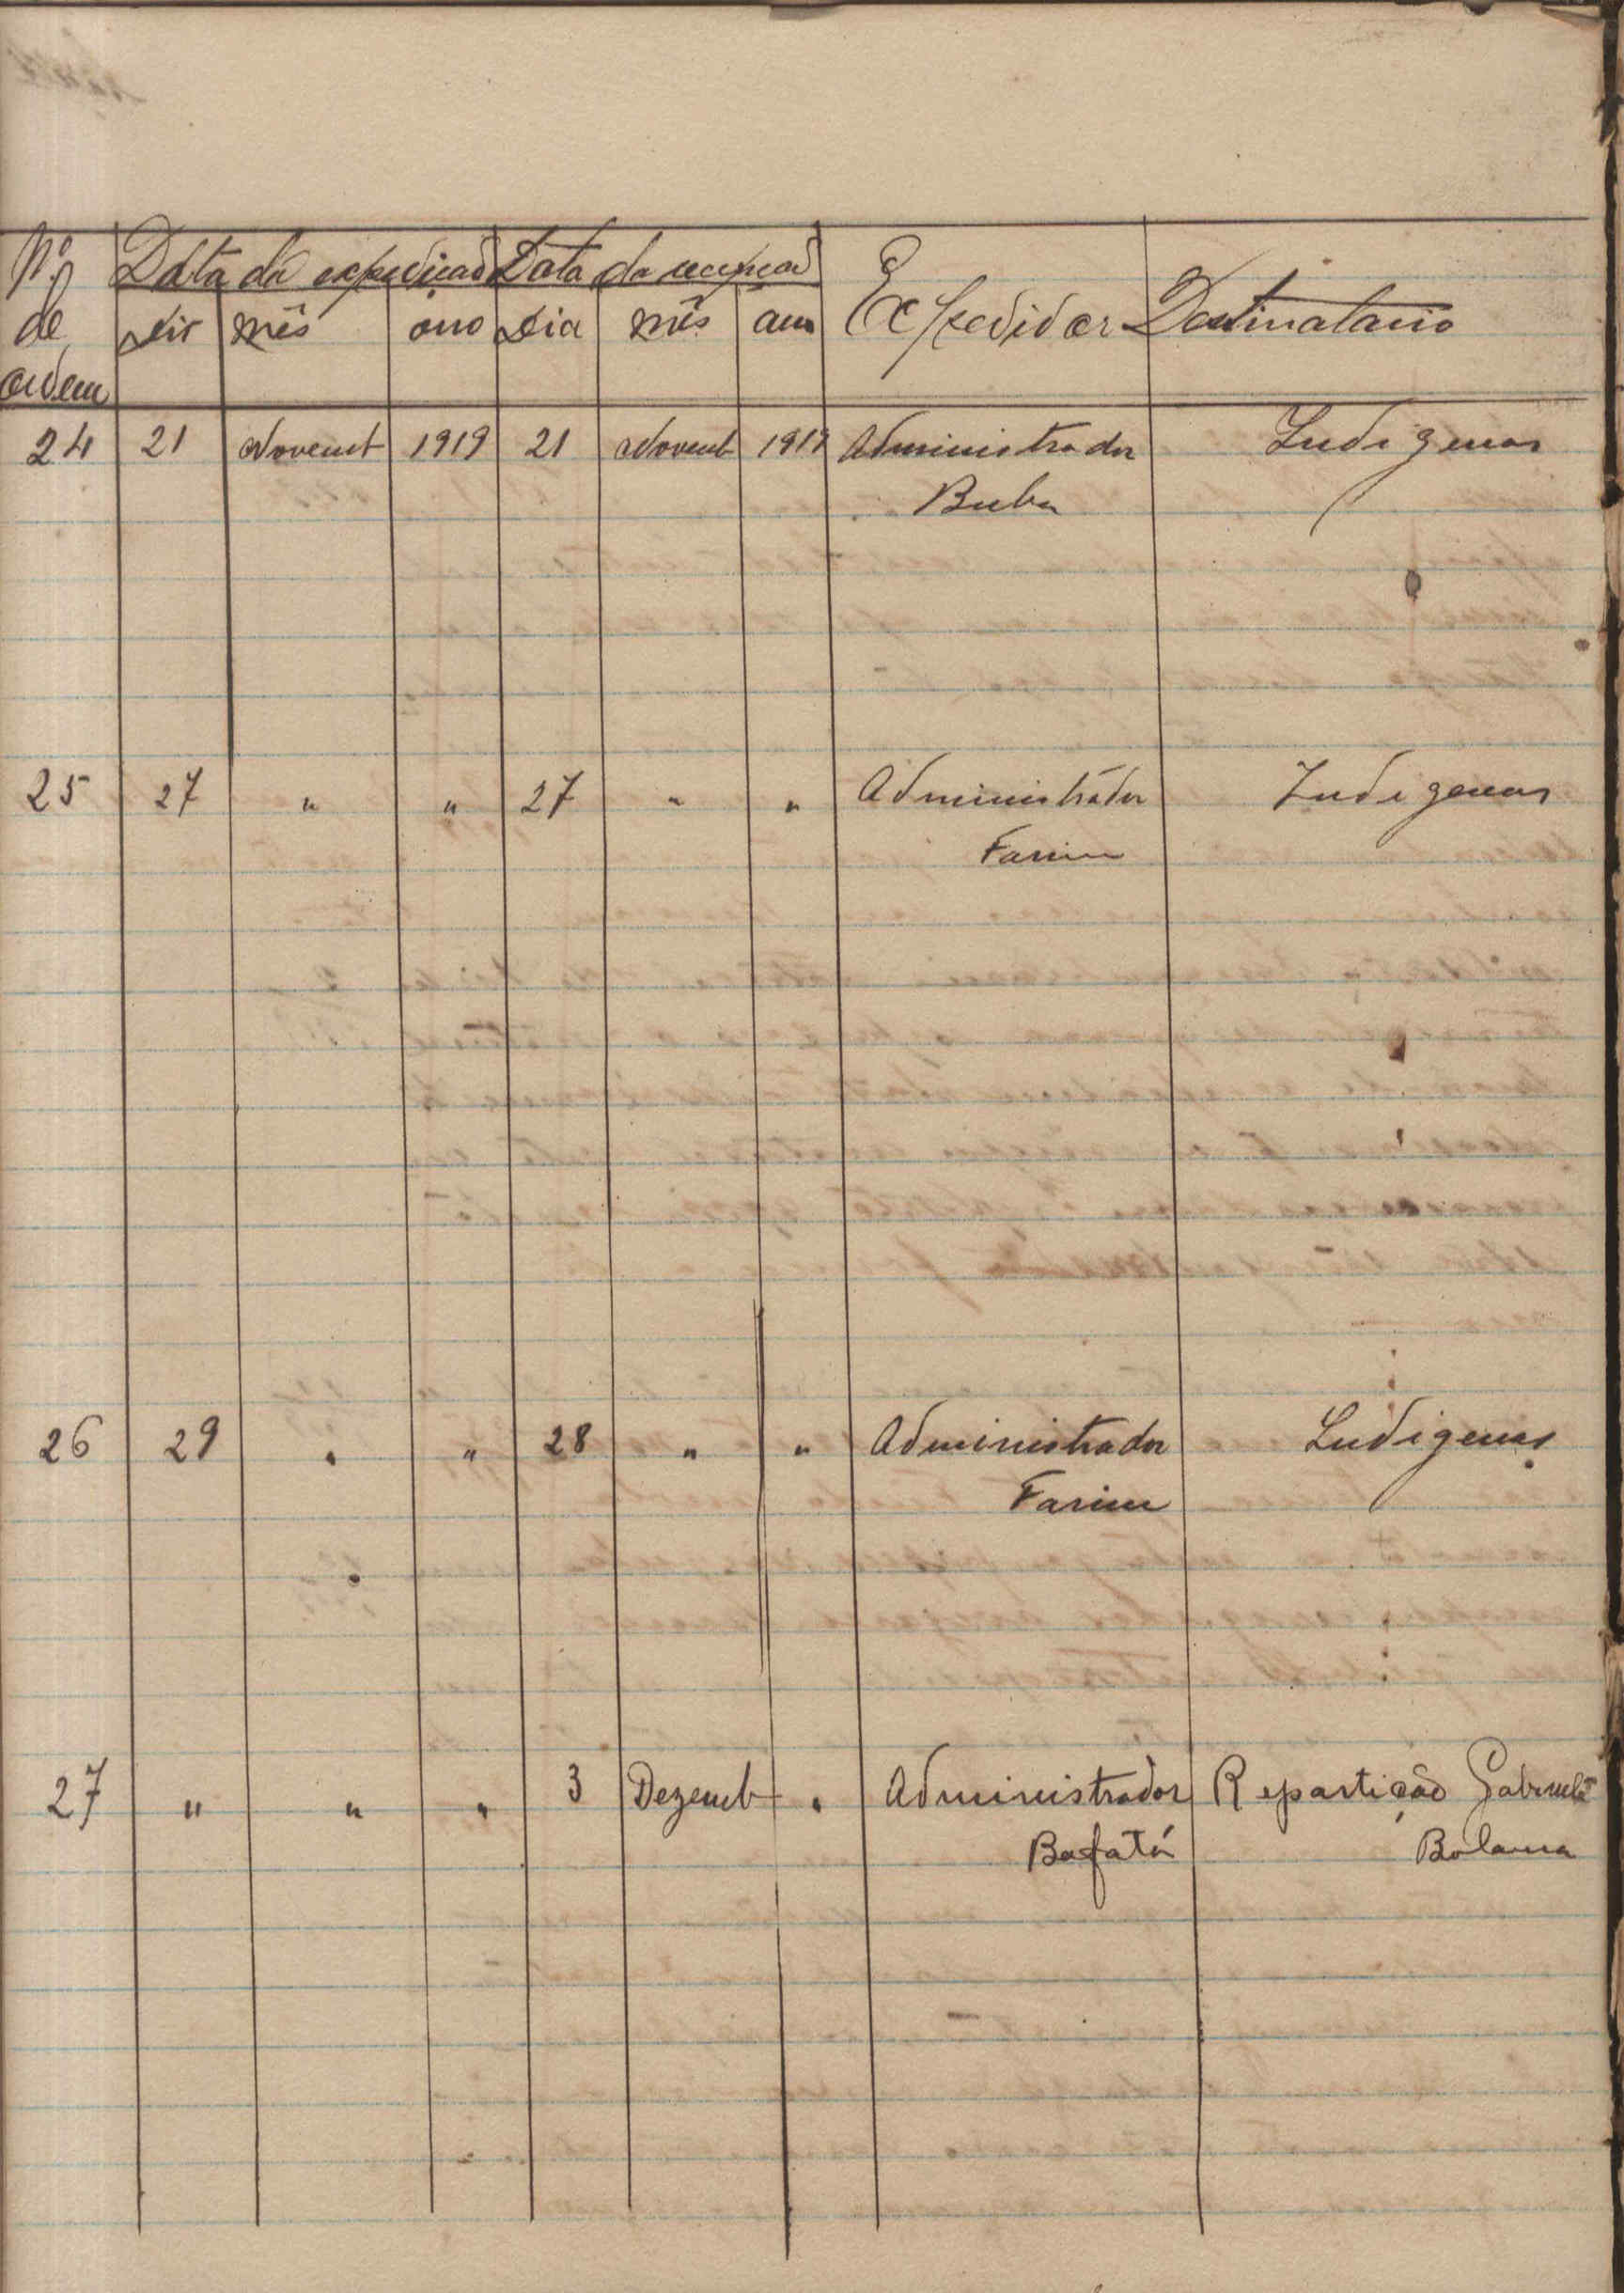 Nº Data da expedição Data da recepção Expedidor Destinatario
de dia mês ano Dia mês ano
ordem
24 21 Novemb 1919 21 Novemb 1919 Administrador Indigenas
Buba
25 27 " " 27 " " Administrador Indigenas
Farim
26 29 " " 28 " " Administrador Indigenas
Farim
27 " " " 3 Dezemb " Administrador Repartição Gabinete
Bafatá Bolama